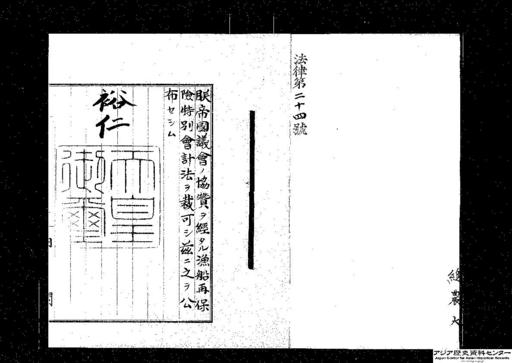 法律第二十四號
朕帝國議會ノ協賛ヲ經タル漁船再保
險特別會計法ヲ裁可シ茲ニ之ヲ公
布セシム
裕仁
天皇
御璽
アジア歴史資料センター
Japan Center for Asian Historical Records